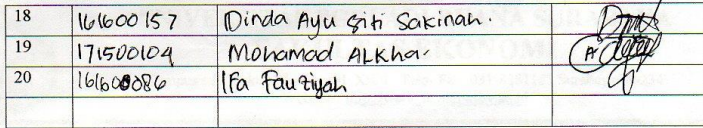 18 161600157 Dinda Ayu Siti Sakinah.
19 171500104 Mohamad ALKha.
20 161600086 Ifa Fauziyah